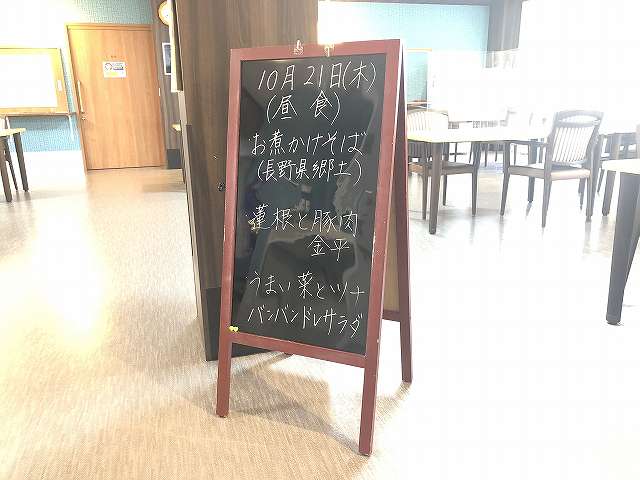 10月21日(木)
(昼食)
お煮かけそば
(長野県郷土)
蓮根と豚肉
金平
うまい菜とツナ
バンバンドレサラダ